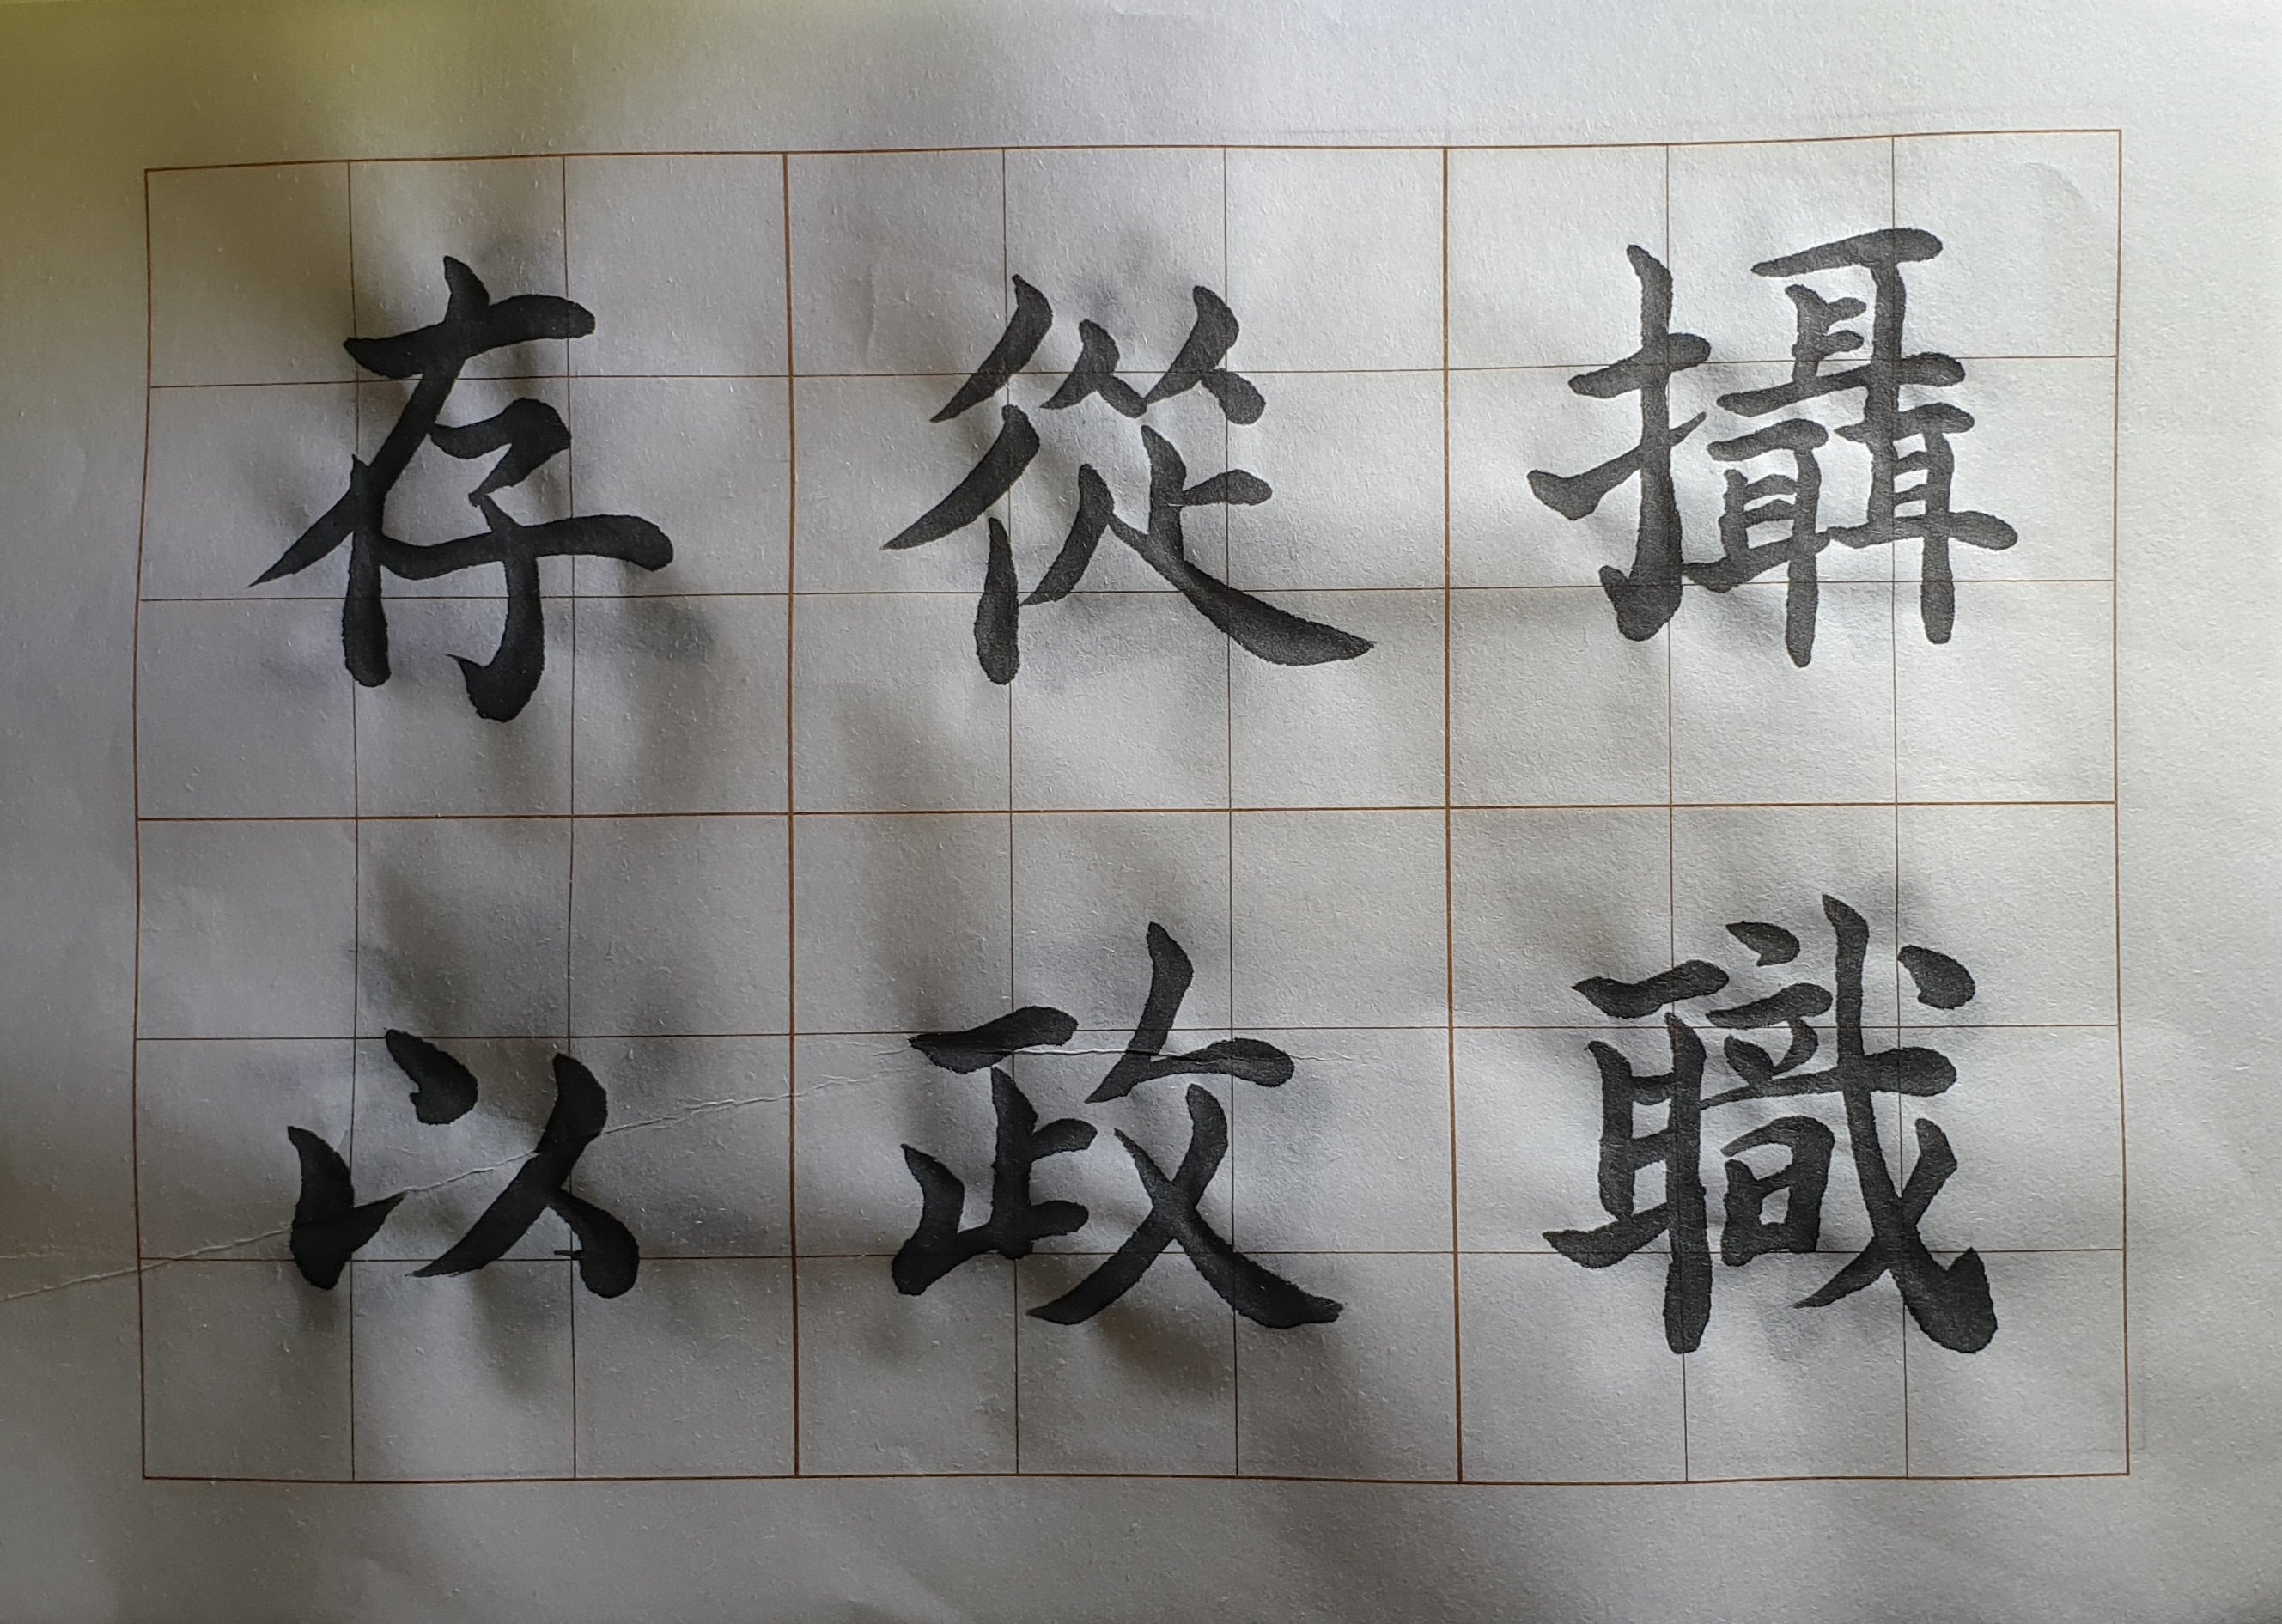 攝職
從政
存以